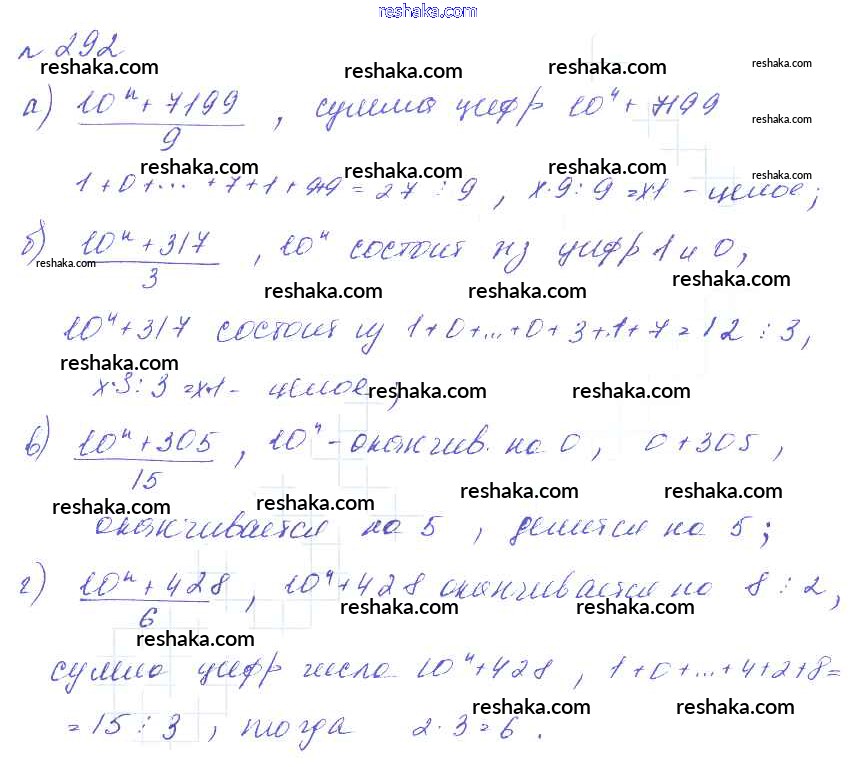 reshaka.com
№ 292
reshaka.com reshaka.com reshaka.com reshaka.com
а) (10ⁿ + 7199)/9 , сумма цифр 10ⁿ + 7199
reshaka.com
reshaka.com reshaka.com reshaka.com reshaka.com
1 + 0 + ... + 7 + 1 + 9+9 = 27 ⋮ 9 , x·9 : 9 = x·1 – целое;
б) (10ⁿ + 317)/3 , 10ⁿ состоит из цифр 1 и 0,
reshaka.com
reshaka.com reshaka.com
10ⁿ + 317 состоит из 1 + 0 + ... + 0 + 3 + 1 + 7 = 12 ⋮ 3,
reshaka.com
x·3 : 3 = x·1 – целое;
reshaka.com reshaka.com
в) (10ⁿ + 305)/15 , 10ⁿ – оканчив. на 0 , 0 + 305 ,
reshaka.com reshaka.com
reshaka.com reshaka.com
оканчивается на 5 , делится на 5 ;
г) (10ⁿ + 428)/6 , 10ⁿ + 428 оканчивается на 8 ⋮ 2 ,
reshaka.com reshaka.com
reshaka.com
сумма цифр числа 10ⁿ + 428 , 1 + 0 + ... + 4 + 2 + 8 =
reshaka.com reshaka.com
= 15 ⋮ 3 , тогда 2 · 3 = 6 .